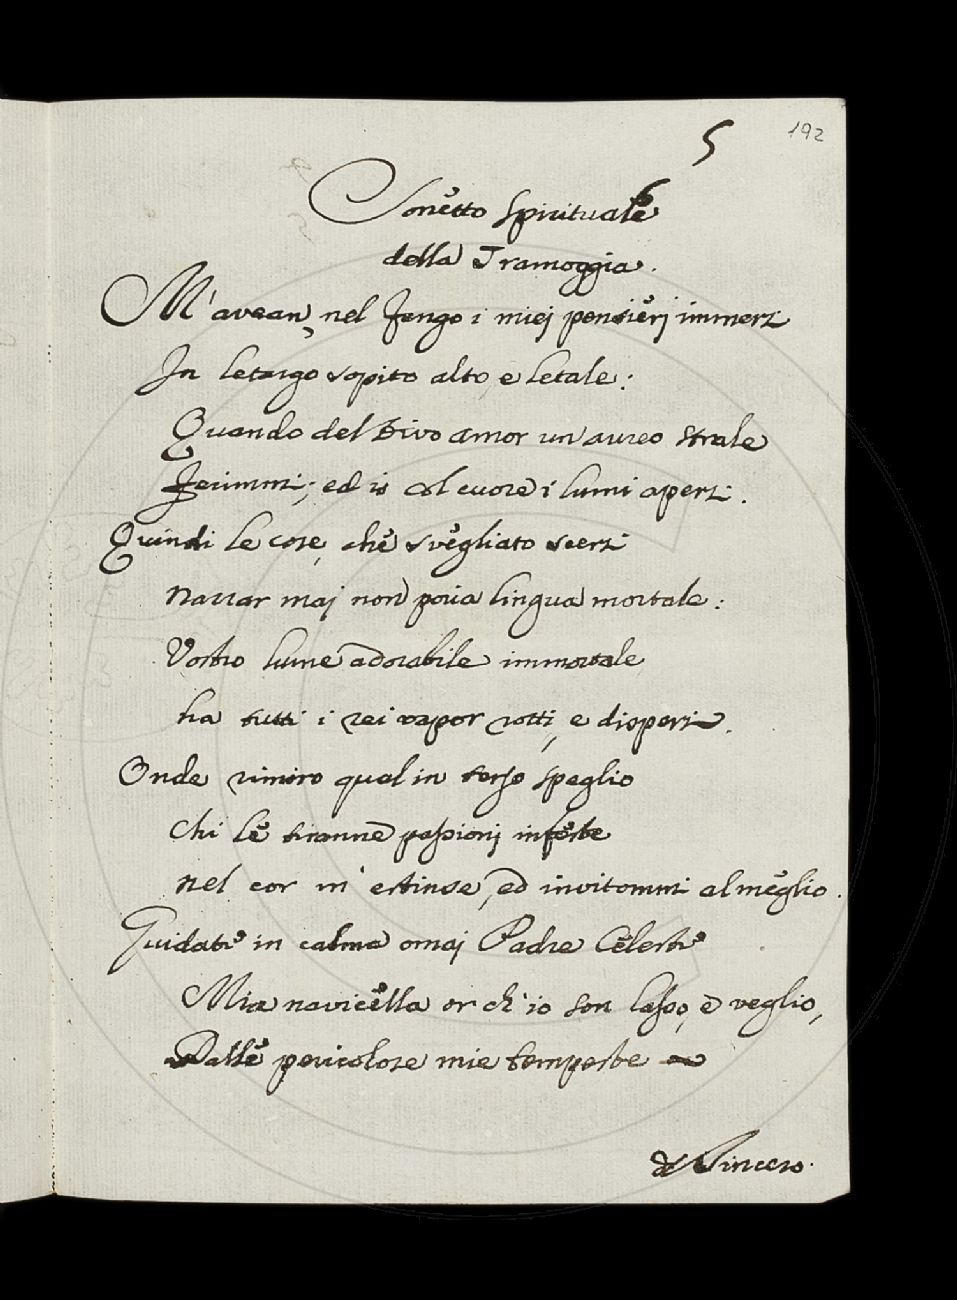 5
192
Sonetto Spirituale
della Tramoggia.
M'avean, nel fango i miej pensierj immersi
In letargo sopito alto, e letale:
Quando del Divo amor un aureo strale
Ferimmi; ed io al cuore i lumi apersi.
Quindi le cose, che svegliato scersi
Narrar maj non poria lingua mortale:
Vostro lume adorabile immortale
ha tutti i rei vapor rotti, e dispersi.
Onde rimiro qual in terso speglio
Chi le tiranne passionj infeste
Nel cor m'estinse, ed invitommi al meglio.
Guidate in calma omaj Padre Celeste
Mia navicella or ch'io son lasso, e veglio,
Dalle pericolose mie tempeste
Sincero.